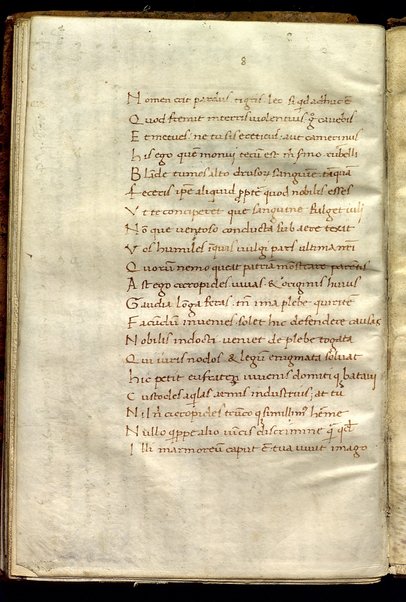 8
Nomen erit pardus tigris leo si qd adhuc ē
Quod fremit interris violentius g̃ cavebis
Et metues ne tu sis creticus aut camerinus
his ego quē monui tecū est m̃ smo rubelli
Blāde tumes alto drusoꝝ sanguine tāqua
Feceris ipse aliquid ꝓpte quod nobilis esses
Vt te conciperet que sanguine fulget iuli
Nō que ventoso conducta sub aere texit
Vos humiles inqs vulgi pars ultima nr̃i
Quorū nemo queat patriā mōstrare parētis
Ast ego cicropides vivas & originis huius
Gaudia lōga feras tñ ima plebe quiritē
Facūdū invenies solet hic defendere causas
Nobilis indocti veniet de plebe togata
Qui iuris nodos & legū enigmata solvat
hic petit eufratē iuvenis domiti q̃ batavi
Custodes aqlas armis industrius at tu
Nil n̄ cicropides trūco qz simillimꝰ herme
Nullo qppe alio vīcis discrimine q̃ qd
Illi marmoreū caput ē tua vivit imago